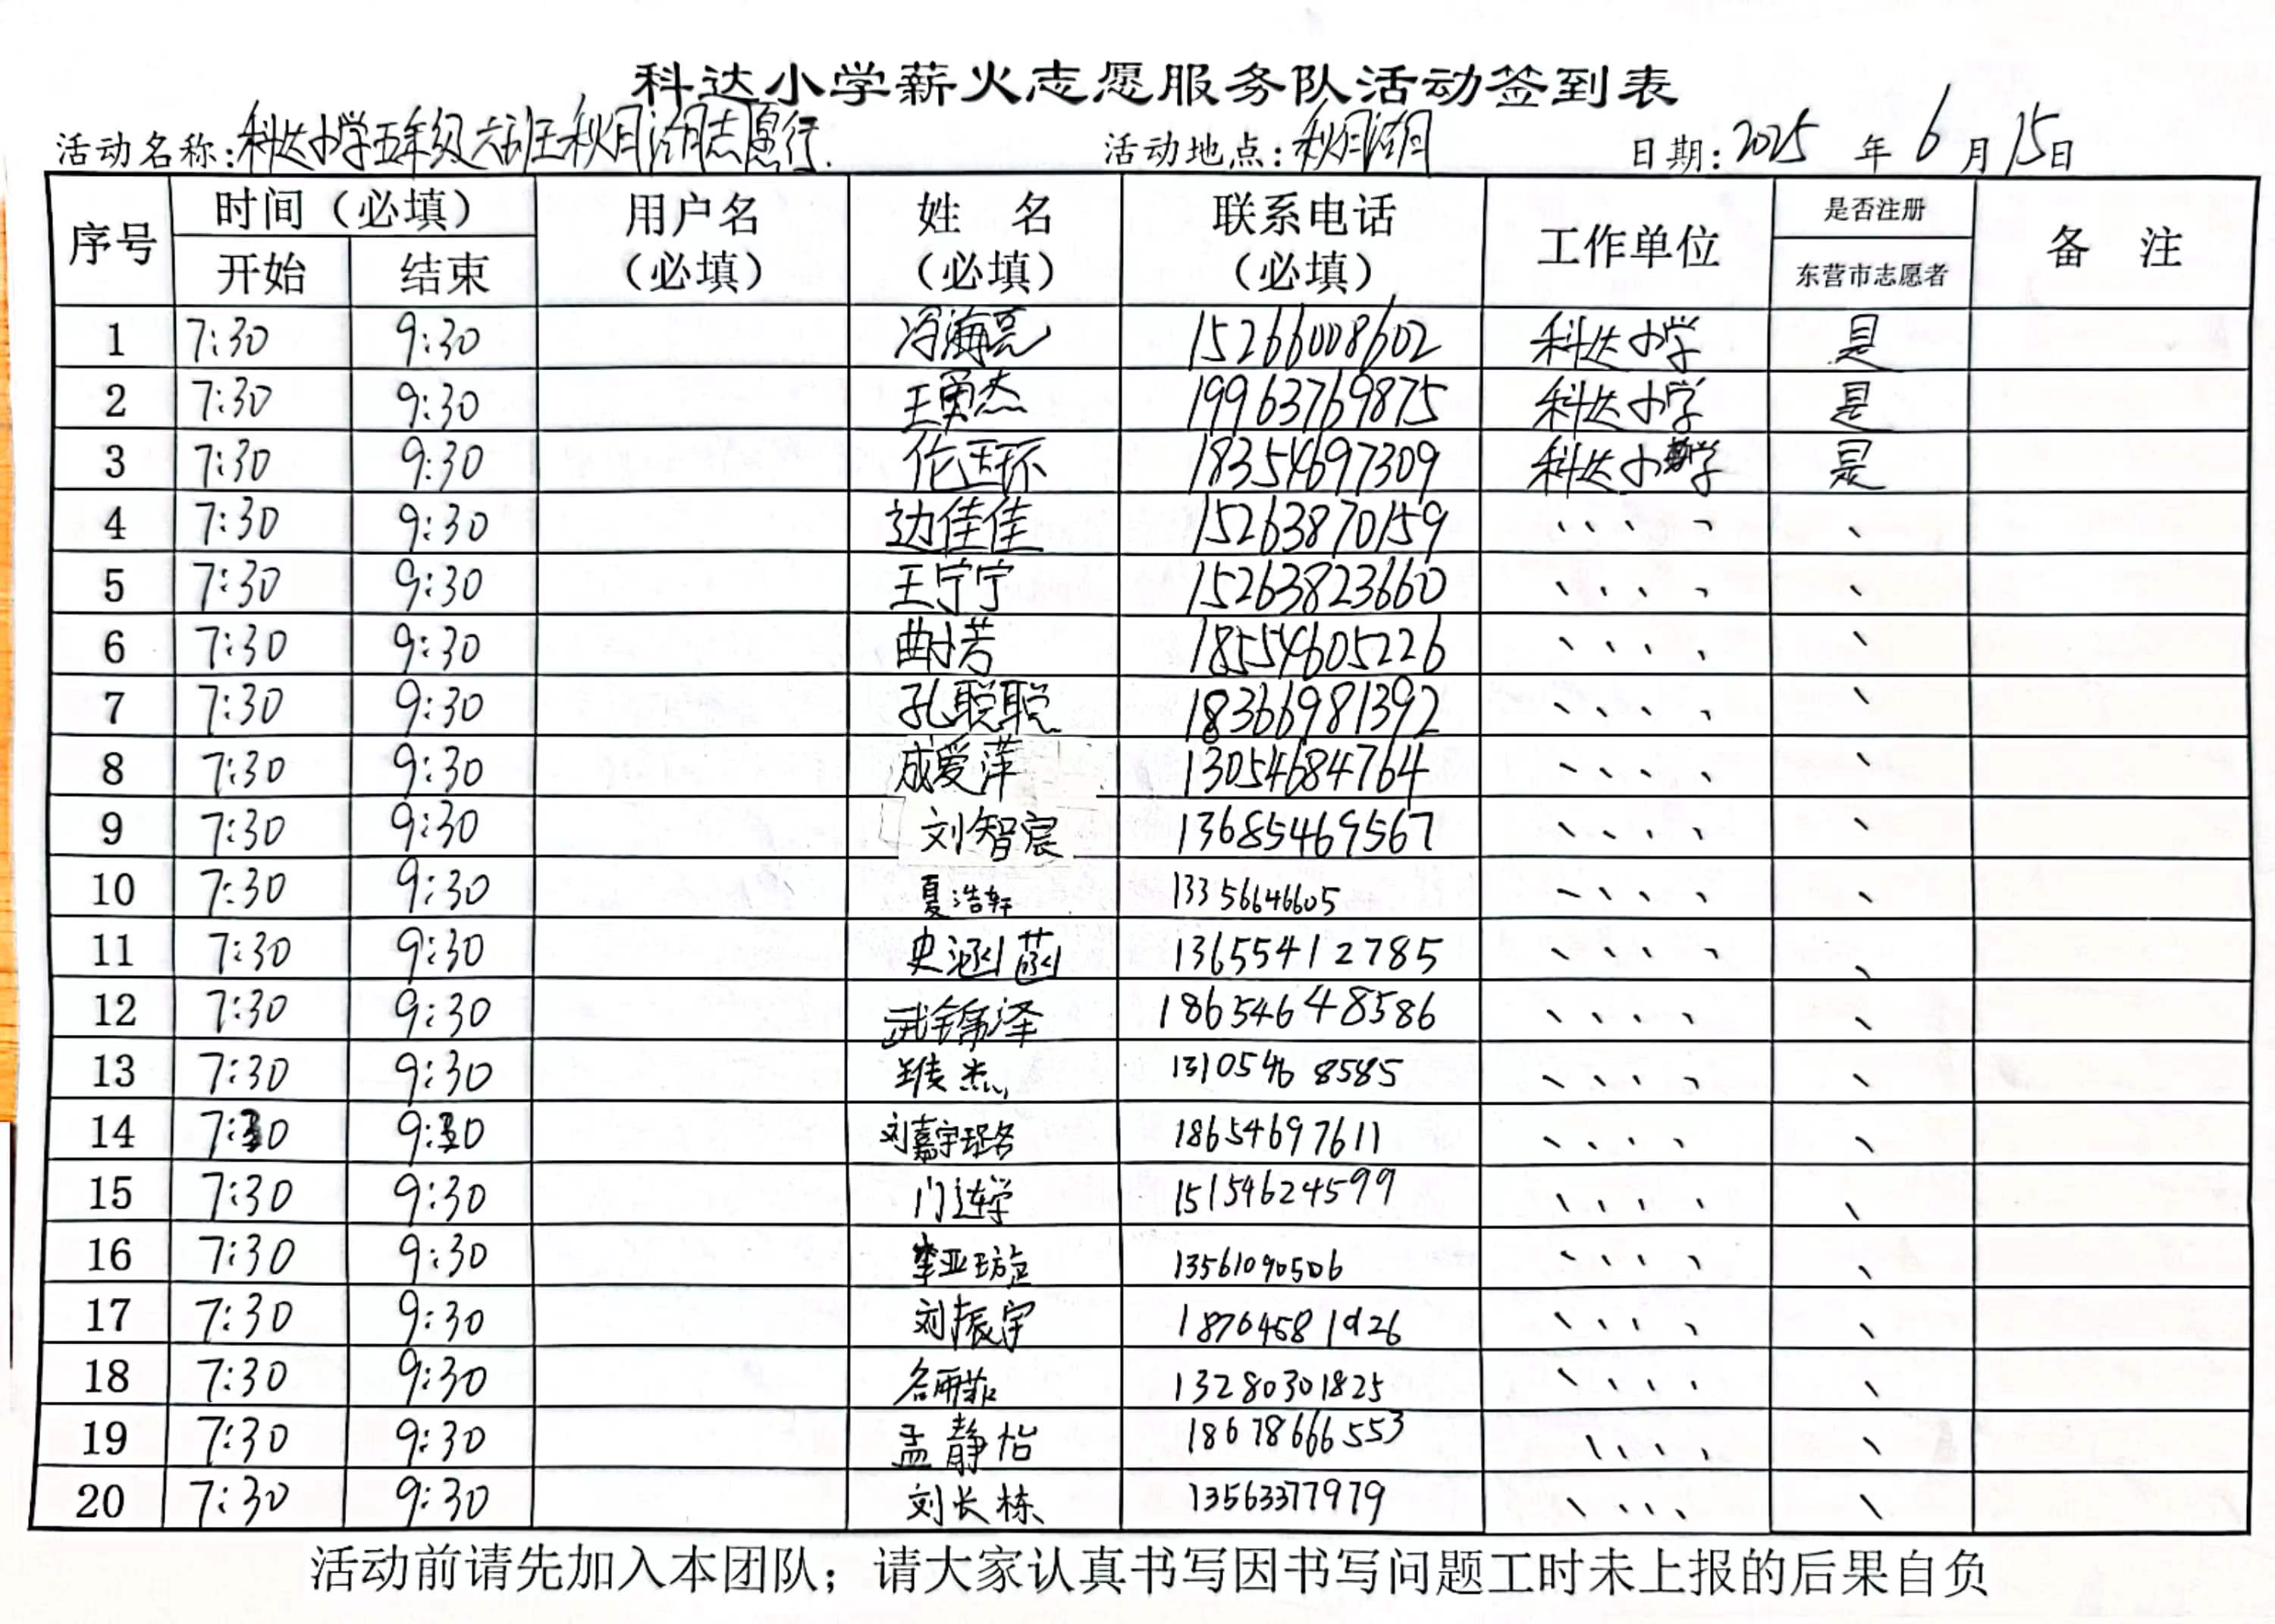 科达小学薪火志愿服务队活动签到表
活动名称:科达小学五年级六班王秋月湖志愿行. 活动地点:秋月湖 日期:2025 年 6 月 15 日
序号 时间（必填） 用户名（必填） 姓 名（必填） 联系电话（必填） 工作单位 是否注册 东营市志愿者 备 注
开始 结束
1 7:30 9:30 冯海亮 15266008602 科达小学 是
2 7:30 9:30 王勇杰 19963769875 科达小学 是
3 7:30 9:30 伦玉环 18354697309 科达小学 是
4 7:30 9:30 边佳佳 15263870159 、、、、 、
5 7:30 9:30 王宁宁 15263823660 、、、、 、
6 7:30 9:30 曲小芳 18554605226 、、、、 、
7 7:30 9:30 孔聪聪 18366981392 、、、、 、
8 7:30 9:30 成爱萍 13054684764 、、、、 、
9 7:30 9:30 刘智宸 13685469567 、、、、 、
10 7:30 9:30 夏浩轩 13356646605 、、、、 、
11 7:30 9:30 史涵菡 13655412785 、、、、 、
12 7:30 9:30 武锦泽 18654648586 、、、、 、
13 7:30 9:30 13105468585 、、、、 、
14 7:30 9:30 刘嘉宇 18654697611 、、、、 、
15 7:30 9:30 门连学 15154624599 、、、、 、
16 7:30 9:30 李亚 13561090506 、、、、 、
17 7:30 9:30 刘振宇 18764581926 、、、、 、
18 7:30 9:30 13280301825 、、、、 、
19 7:30 9:30 孟静怡 18678666553 、、、、 、
20 7:30 9:30 刘长栋 13563377979 、、、、 、
活动前请先加入本团队；请大家认真书写因书写问题工时未上报的后果自负